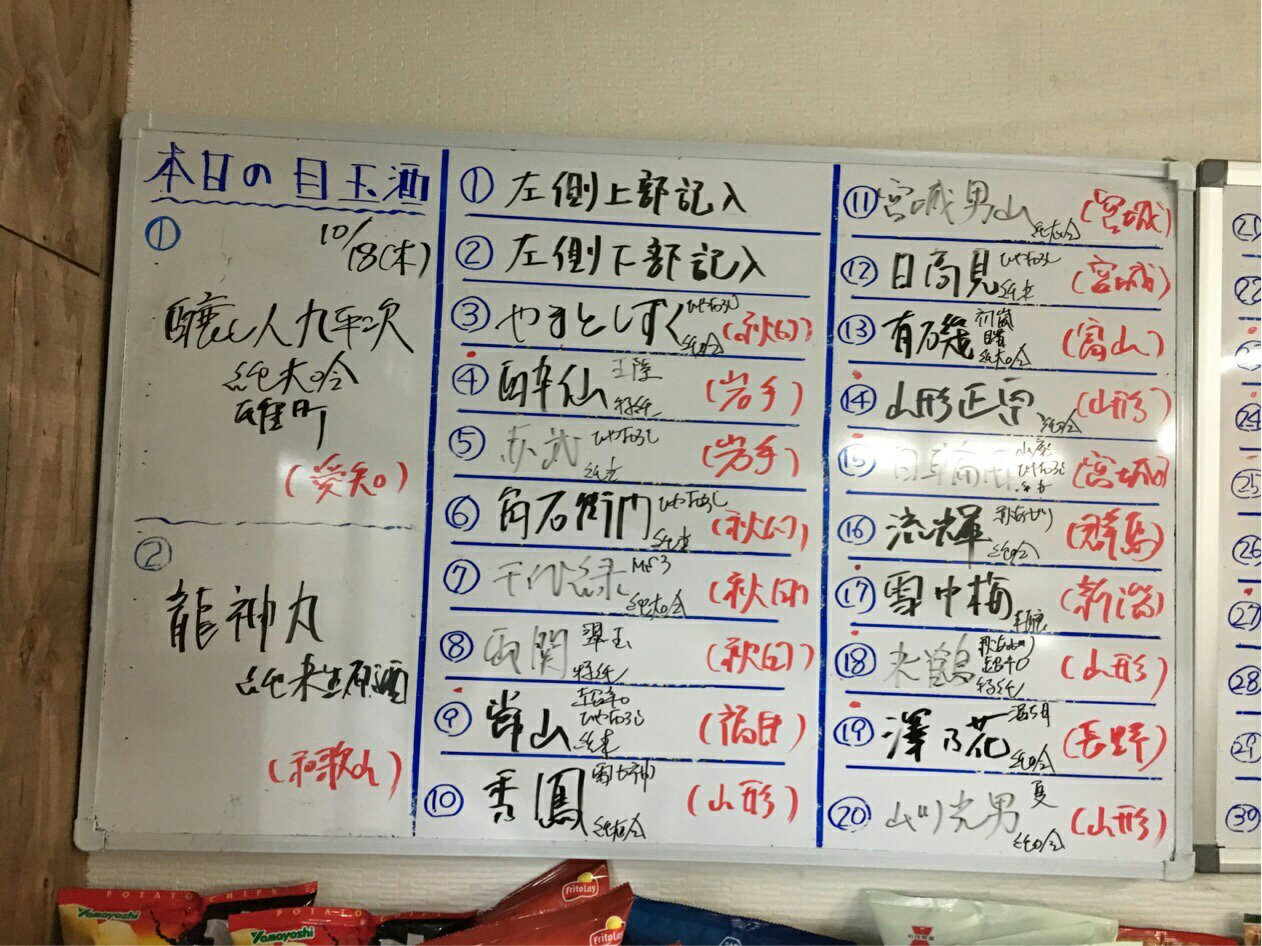 本日の目玉酒
①
10/18(木)
醸し人九平次
純米吟
雄町
(愛知)
②
龍神丸
純米生原酒
(和歌山)
① 左側上部記入
② 左側下部記入
③ やまとしずく ひやおろし 純吟 (秋田)
④ 酔仙 特純 (岩手)
⑤ 赤武 ひやおろし 純米 (岩手)
⑥ 角右衛門 ひやおろし 純米 (秋田)
⑦ 千代緑 純米吟 (秋田)
⑧ 両関 翠玉 特純 (秋田)
⑨ 常山 超辛口 ひやおろし 純米 (福井)
⑩ 秀鳳 雪女神 純大吟 (山形)
⑪ 宮城男山 純大吟 (宮城)
⑫ 日高見 ひやおろし 純米 (宮城)
⑬ 有磯 曙 初嵐 純米吟 (富山)
⑭ 山形正宗 純吟 (山形)
⑮ 日輪田 山廃 ひやおろし 純米 (宮城)
⑯ 流輝 秋あがり 純吟 (群馬)
⑰ 雪中梅 本醸 (新潟)
⑱ 米鶴 超辛口 特純 (山形)
⑲ 澤乃花 純吟 (長野)
⑳ 山川光男 夏 純吟 (山形)
21
22
24
25
26
27
28
29
30
POTATO CHIPS
Yamayoshi
POTATO
Yamayoshi
FritoLay
FritoLay